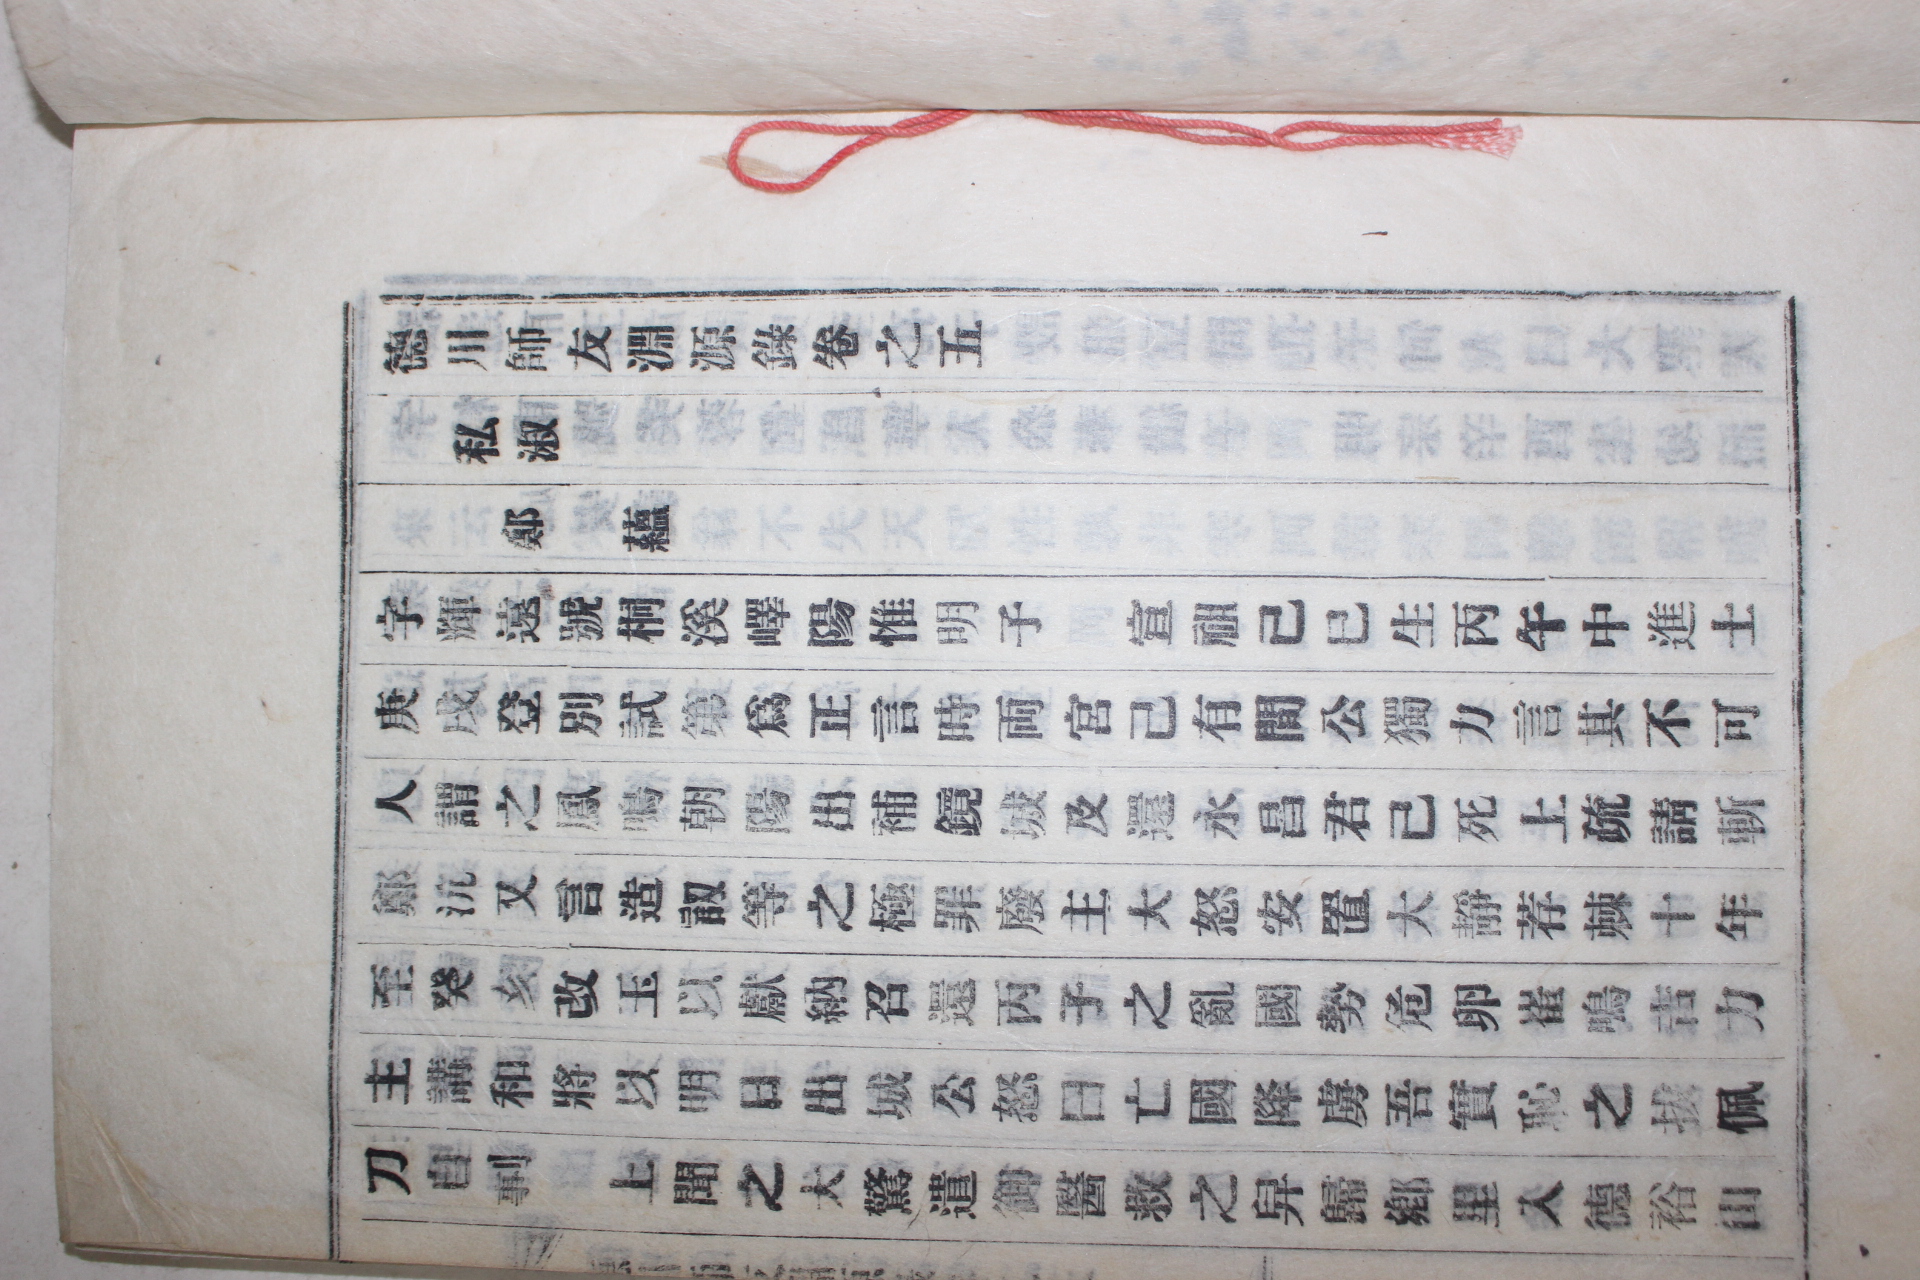 德川師友淵源錄卷之五
私淑
鄭蘊
字輝遠號桐溪嶧陽惟明子 宣祖己巳生丙午中進士
庚戌登別試第爲正言時両宮己有間公獨力言其不可
人謂之鳳鳴朝陽出補鏡城及還永昌君己死上疏請斬
鄭沆又言造訒等之極罪廢主大怒安置大靜荐棘十年
至癸亥改玉以獻納召還丙子之亂國勢危卵崔鳴吉力
主講和將以明日出城公怒曰亡國降虜吾實恥之拔佩
刀自剚 上聞之大驚遣御醫救之舁歸鄕里入德裕山